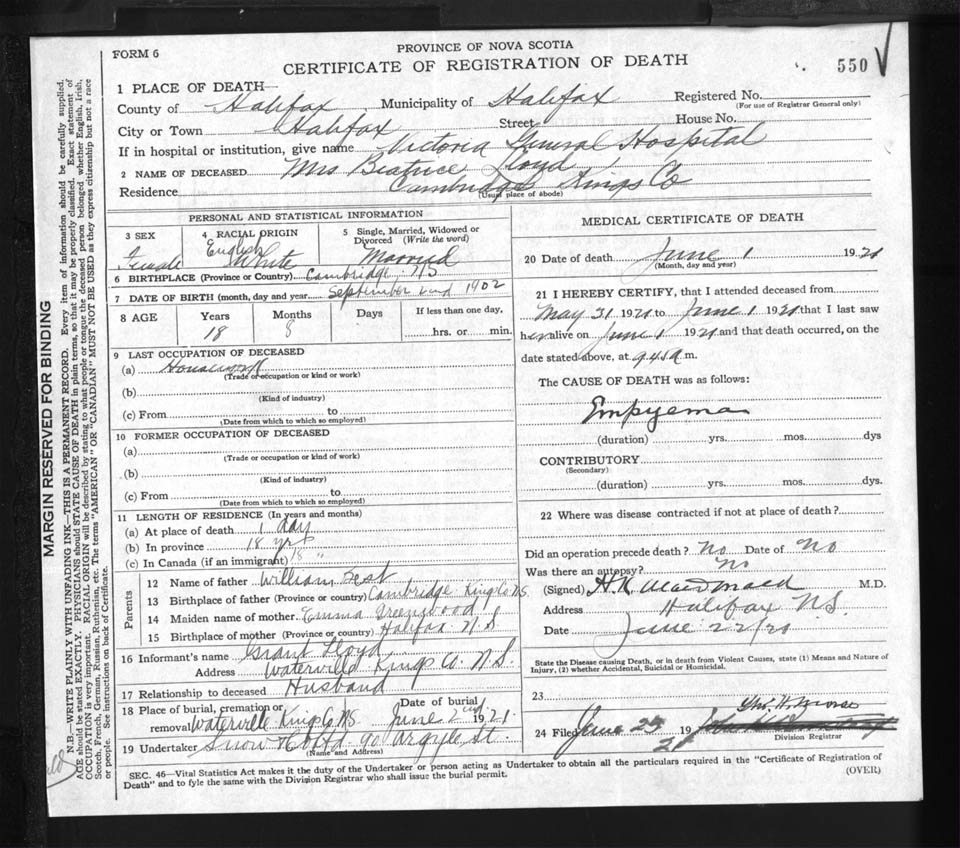 FORM 6
PROVINCE OF NOVA SCOTIA
CERTIFICATE OF REGISTRATION OF DEATH
550
1 PLACE OF DEATH
County of Halifax, Municipality of Halifax Registered No.
(For use of Registrar General only)
City or Town Halifax Street House No.
If in hospital or institution, give name Victoria General Hospital
2 NAME OF DECEASED Mrs Beatrice Lloyd
Residence Cambridge Kings Co
(Usual place of abode)
PERSONAL AND STATISTICAL INFORMATION
3 SEX
Female
4 RACIAL ORIGIN
English
White
5 Single, Married, Widowed or
Divorced (Write the word)
Married
6 BIRTHPLACE (Province or Country) Cambridge NS
7 DATE OF BIRTH (month, day and year September 2nd 1902
8 AGE Years Months Days If less than one day,
18 8 hrs. or min.
9 LAST OCCUPATION OF DECEASED
(a) Housework
(Trade or occupation or kind or work)
(b)
(Kind of industry)
(c) From to
(Date from which to which so employed)
10 FORMER OCCUPATION OF DECEASED
(a)
(Trade or occupation or kind of work)
(b)
(Kind of industry)
(c) From to
(Date from which to which so employed)
11 LENGTH OF RESIDENCE (In years and months)
(a) At place of death 1 day
(b) In province 18 yrs
(c) In Canada (if an immigrant) 18 "
Parents
12 Name of father William Best
13 Birthplace of father (Province or country) Cambridge Kings Co NS.
14 Maiden name of mother Emma Greenwood
15 Birthplace of mother (Province or country) Halifax N.S.
16 Informant's name Grant Lloyd
Address Waterville Kings Co N.S.
17 Relationship to deceased Husband
18 Place of burial, cremation or Date of burial
removal Waterville Kings Co NS. June 2nd 1921
19 Undertaker Snow & Co Ltd 90 Argyle St.
(Name and Address)
MEDICAL CERTIFICATE OF DEATH
20 Date of death June 1 1921
(Month, day and year)
21 I HEREBY CERTIFY, that I attended deceased from
May 31 1921 to June 1 1921 that I last saw
her alive on June 1 1921 and that death occurred, on the
date stated above, at 9.45 a m.
The CAUSE OF DEATH was as follows:
Empyema
(duration) yrs. mos. dys
CONTRIBUTORY
(Secondary)
(duration) yrs. mos. dys.
22 Where was disease contracted if not at place of death?
Did an operation precede death? No Date of No
Was there an autopsy? No
(Signed) H.K. MacDonald M.D.
Address Halifax N.S.
Date June 22
State the Disease causing Death, or in death from Violent Causes, state (1) Means and Nature of
Injury, (2) whether Accidental, Suicidal or Homicidal.
23
24 Filed June 19
21
Division Registrar
SEC. 46—Vital Statistics Act makes it the duty of the Undertaker or person acting as Undertaker to obtain all the particulars required in the "Certificate of Registration of
Death" and to fyle the same with the Division Registrar who shall issue the burial permit.
(OVER)
MARGIN RESERVED FOR BINDING
N.B—WRITE PLAINLY WITH UNFADING INK—THIS IS A PERMANENT RECORD. Every item of information should be carefully supplied.
AGE should be stated EXACTLY. PHYSICIANS should STATE CAUSE OF DEATH in plain terms, so that it may be properly classified. Exact statement of
OCCUPATION is very important. RACIAL ORIGIN will be described by stating to what people or tongue the deceased person belonged whether English, Irish,
Scotch, French, German, Russian, Ruthenian, etc. The terms "AMERICAN" OR "CANADIAN" MUST NOT BE USED as they express citizenship but not a race
or people. See instructions on back of Certificate.